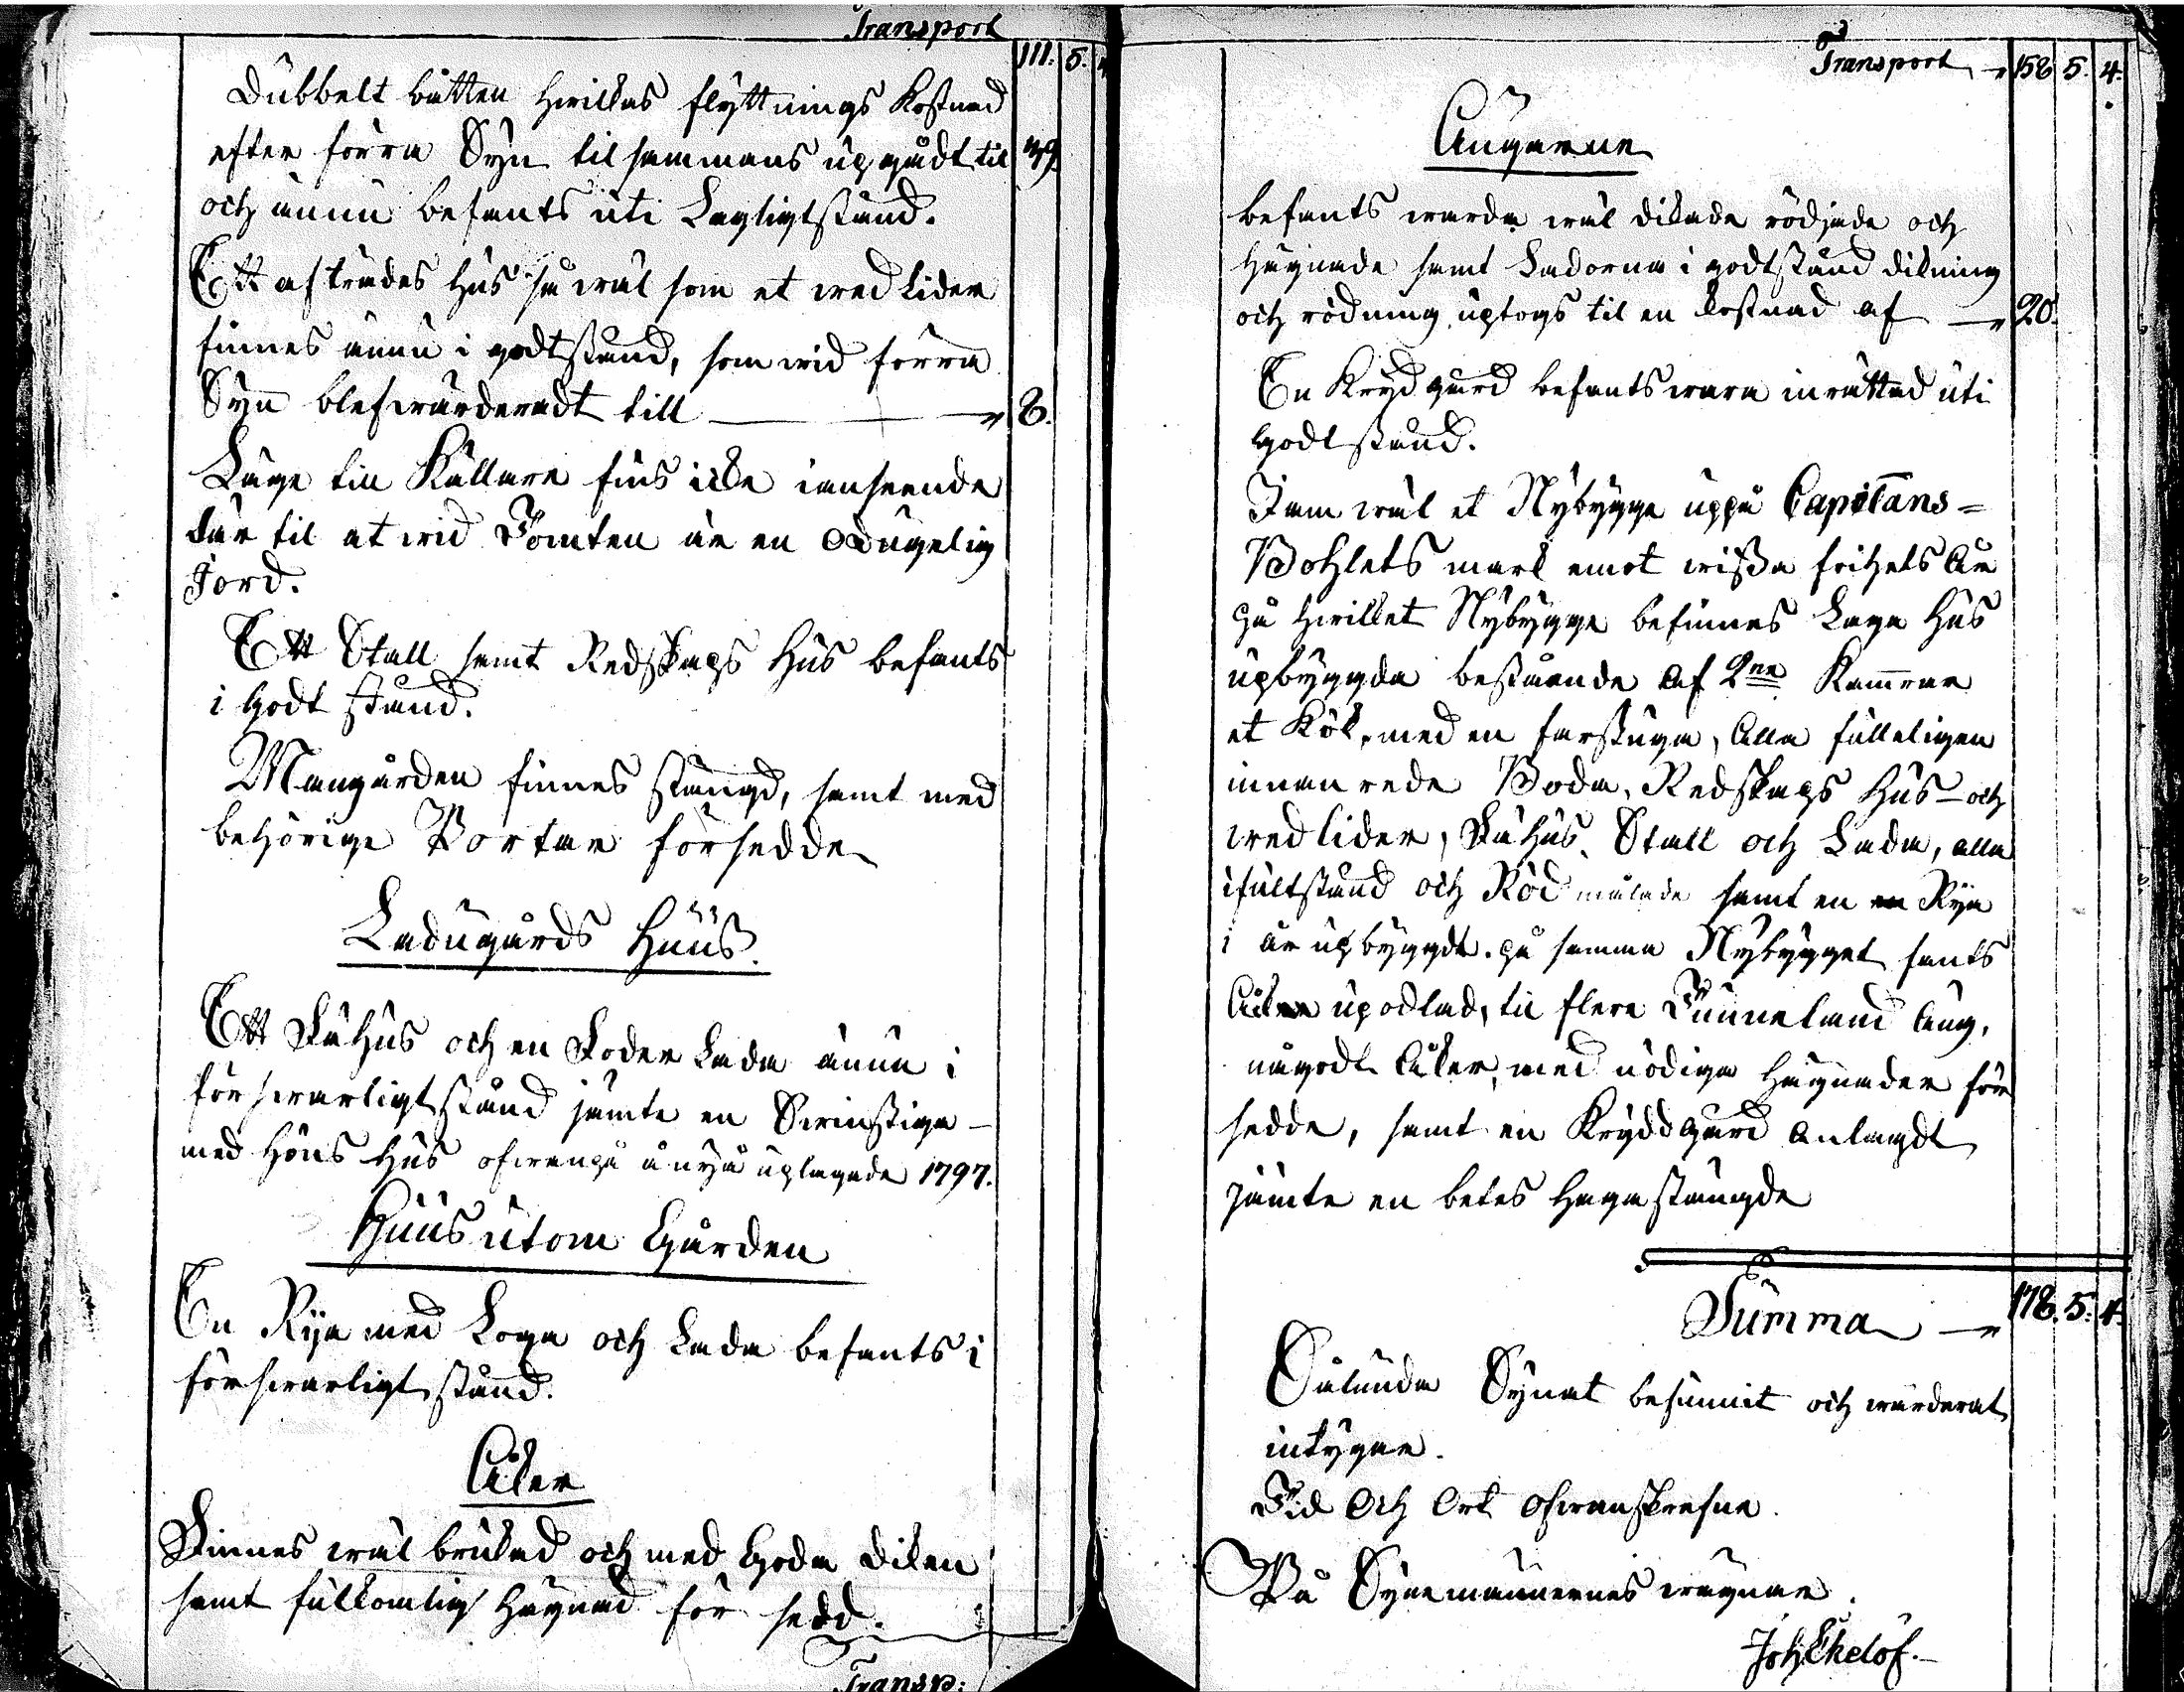 Transport
111. 5. 4
Dubbelt båtten hvilkas flyttnings Kostnad
efter förra Syn til sammans upgådt til 39.
och ännu befants uti Lagligt stånd.
Ett afträdes hus så wäl som et wed lider
finnes ännu i godt stånd, som wid förra
Syn blef wärderadt till 8.
Läge till Källare fins icke i anseende
där til at wid Tomten är en odugelig
Jord.
Ett Stall samt Redskaps Hus befants
i Godt stånd.
Mangården finnes stängd, samt med
behörige Portar försedde
Ladugårds Huus.
Ett Fähus och en Foder Lada ännu i
försvarligt stånd jämte en Swinstiga
med Höns Hus ofwanpå å nyå uplagade 1797.
Huus utom Gården
En Rya med Loga och Lada befants i
försvarligt stånd.
Åker
Finnes wäl brukad och med Goda Diken
samt fulkomlig Hägnad för sedd.
Transp:
Transport 158 5. 4.
Ängarne
befants warda wäl dikade rödjade och
hägnade samt Ladorna i godt stånd dikning
och rödning uptogs til en kostnad af 20.
En Krydgård befants wara inrättad uti
Godt stånd.
Jämwäl et Nybygge uppå Capitans-
Bohlets mark emot wissa frihets År
på hwilket Nybygge befinnes Laga Hus
upbyggda bestående af 2ne Kamrar
et Kök, med en farstuga, Alla fulleligen
innanrede Boda, Redskaps Hus och
wedlider, Fähus, Stall och Lada, alla
i fult stånd och Röd målade samt en en Rya
i år upbyggdt. på samma Nybygget fants
Åker upodlad, til flere Tunneland Äng,
någodt Åker, med nödiga Hägnader för
sedde, samt en Kryddgård Anlagdt
jämte en betes Haga stängde
Summa 178. 5. 4.
Sålunda Synat befunnit och wärderat
intygar.
Tid Och Ort Ofwanskrefne.
På Synemännernes wägnar.
Joh Ekelöf.